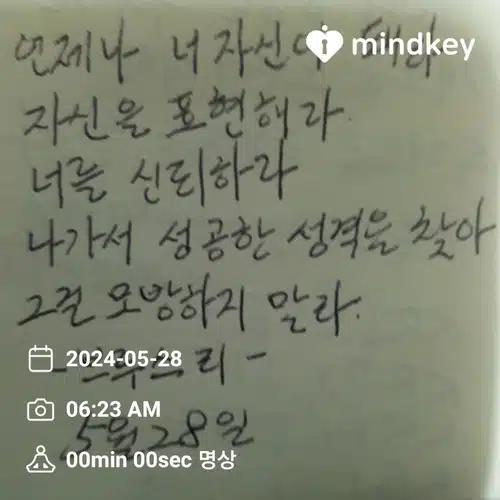 언제나 너 자신이 되라
mindkey
자신을 표현해라.
너를 신뢰하라
나가서 성공한 성격을 찾아
그걸 모방하지 말라.
2024-05-28
리 -
06:23 AM
5월 28일
00min 00sec 명상